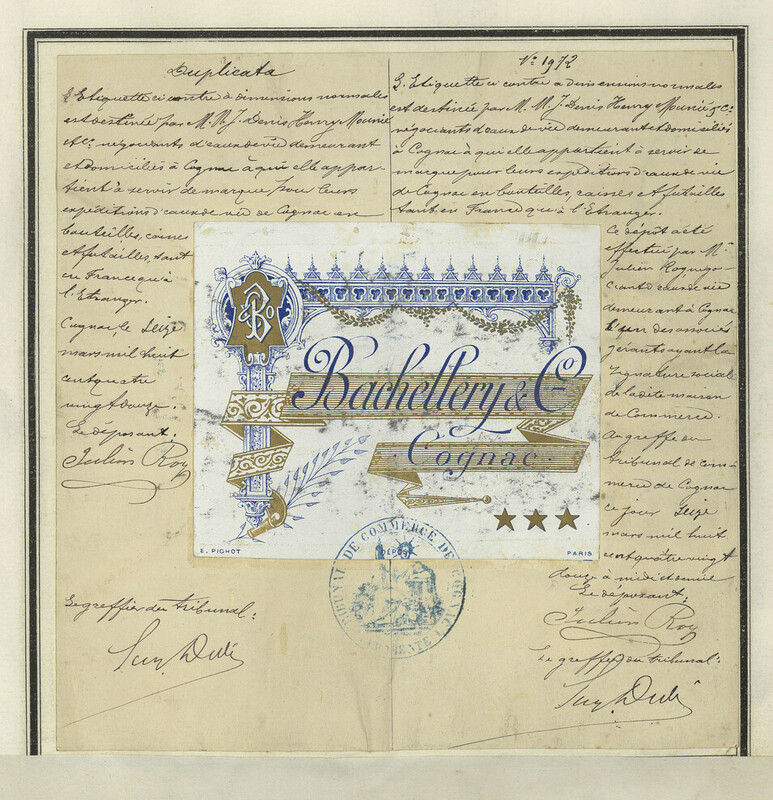 Duplicata
L'Etiquette ci contre à dimensions normales
est destinée par M.M. J. Denis Henry Mounié
& Cie négociants d'eaux de vie demeurant
et domiciliés à Cognac à qui elle appar-
tient à servir de marque pour leurs
expéditions d'eaux de vie de Cognac en
bouteilles, caisses
et futailles, tant
en France qu'à
l'Etranger.
Cognac, le Seize
mars mil huit
cent quatre
vingt douze.
Le déposant,
Julien Roy
Le greffier du tribunal:
No 1972
L'Etiquette ci contre à dimensions normales
est destinée par M.M. J. Denis Henry Mounié & Cie
négociants d'eaux de vie demeurant et domiciliés
à Cognac à qui elle appartient à servir de
marque pour leurs expéditions d'eaux de vie
de Cognac en bouteilles, caisses et futailles
tant en France qu'à l'Etranger.
Ce dépôt a été
effectué par M.
Julien Roy négo-
ciant d'eaux de vie
demeurant à Cognac
l'un des associés
gérants ayant la
signature sociale
de la dite maison
de Commerce.
Au greffe du
tribunal de com-
merce de Cognac
ce jour Seize
mars mil huit
cent quatre vingt
douze à midi et demie
Le déposant:
Julien Roy
Le greffier du tribunal:
B & Co
Bachellery & Co
Cognac
E. PICHOT
DÉPOSÉ
PARIS
TRIBUNAL DE COMMERCE DE COGNAC
CHARENTE